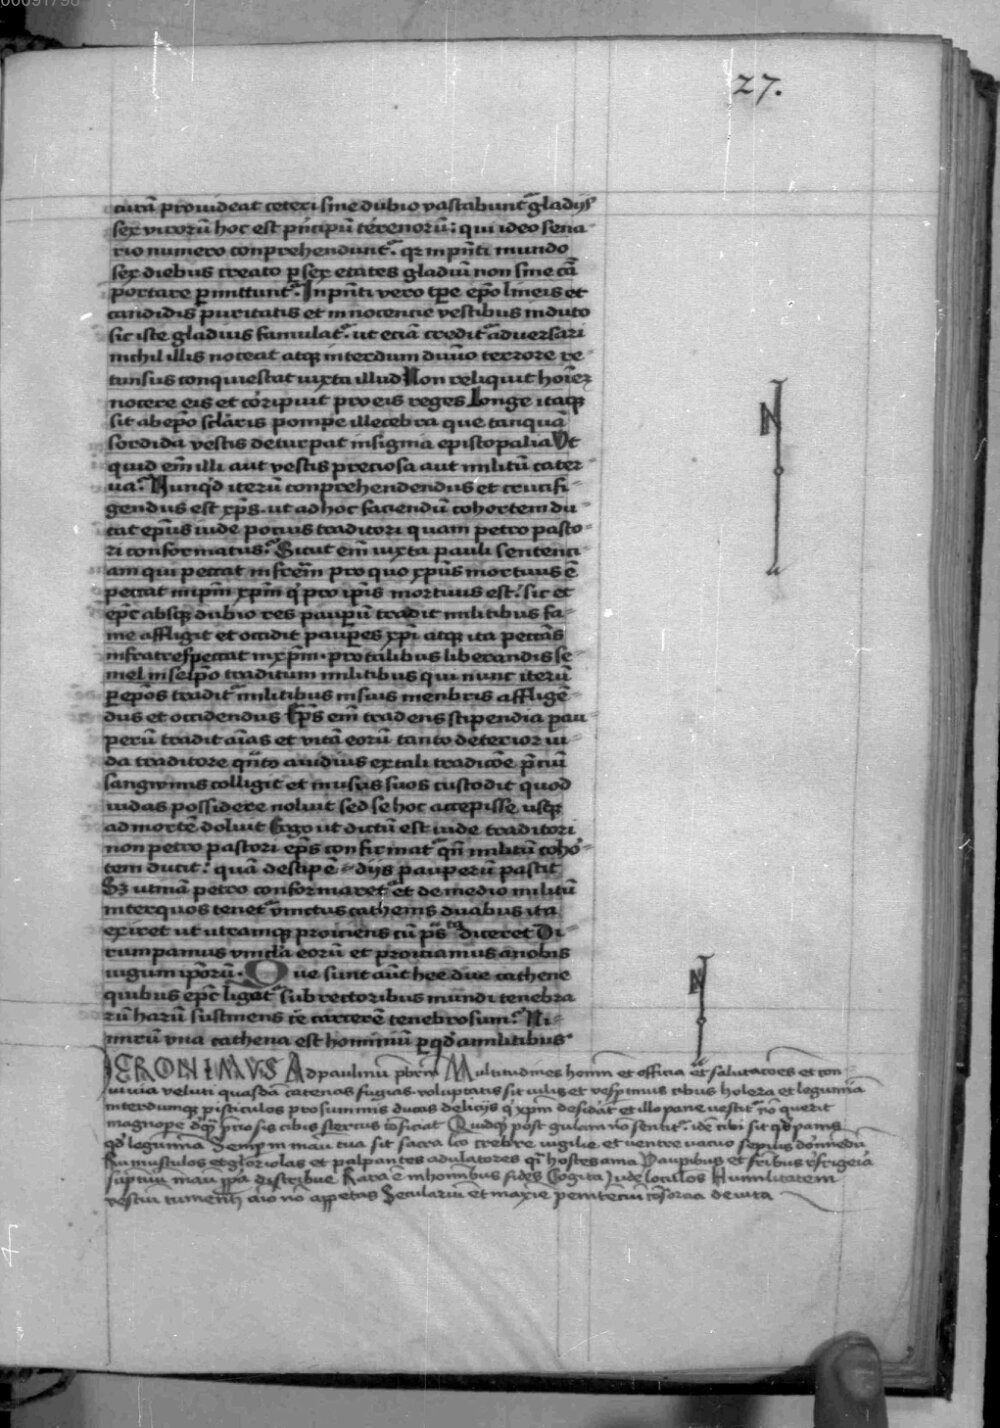 00091798
27.
curā prouideat ceteri sine dubio vastabunt᷑ gladijs
sex virorū hoc est pⁱncipū terrenorū: qui ideo sena
rio numero conprehendunt᷑. qr in pn̄ti mundo
sex diebus creato ꝑ sex etates gladiū non sine cā
portare ꝑmittunt᷑. In pn̄ti vero tꝑe ep̄o lineis et
candidis puritatis et innocencie vestibus induto
sic iste gladius famulat᷑. ut eciā credit᷑ aduersari
nichil illis noceat atqꝫ interdum diuīo terrore re
tunsus conquiescat iuxta illud Non reliquit hoīeꝫ
nocere eis et corripuit pro eis reges Longe itaqꝫ
sit ab ep̄o sclāris pompe illecebra que tanquā
sordida vestis deturpat insignia episcopalia Vt
quid em̄ illi aut vestis preciosa aut militū cater
ua? Nunqͥd iterū conprehendendus et crucifi
gendus est xp̄s. ut ad hoc faciendū cohortem du
cat ep̄us iude pocius traditori quam petro pasto
ri conformatus? Sicut em̄ iuxta pauli sentenci
am qui peccat in frēm pro quo xp̄us mortuus ē
peccat in ip̄m xp̄m qͥ pro ip̄is mortuus est. sic et
ep̄c absqꝫ dubio res pauꝑū tradit militibus fa
me affligit et occidit pauꝑes xp̄i atqꝫ ita peccās
in fratres peccat in xp̄m. pro talibus liberandis se
mel in seip̄o traditum militibus qui nunc iterū
ꝑ ep̄os tradit᷑ militibus in suis menbris affligē
dus et occidendus Ep̄s em̄ tradens stipendia pau
perū tradit aīas et vitā eorū tanto deterior iu
da traditore qn̄to auidius ex tali tradicōe p̄ciū
sangwinis colligit et in usus suos custodit quod
iudas possidere noluit sed se hoc accepisse usqꝫ
ad mortē doluit Ergo ut dictū est iude traditori
non petro pastori ep̄s confirmat᷑ qn̄ militū cohor
tem ducit. quā de stipē dijs pauperū pascit
Sꝫ utinā petro conformaret᷑ et de medio militū
inter quos tenet᷑ vinctus cathenis duabus ita
exiret ut utramqꝫ proiciens cū ps̄ta diceret Di
rumpamus vincla eorū et proiciamus a nobis
iugum ip̄orū. Que sunt aūt hee due cathene
quibus ep̄c ligat᷑ sub rectoribus mundi tenebra
rū harū sustinens carcerē tenebrosum? Ni
mirū vna cathena est hominū ꝑ qͣ a militibus
N
N
IERONIMVS Ad paulinū p̄brm̄ Multitudines homīm et officia et salutacōes et con
uiuia veluti quasdā catenas fugias voluptatis sit vilis et vesꝑtinus cibus holera et legumīa
interdumqꝫ pisciculos pro summis ducas delicijs qͥ xp̄m desiderat et illo pane vescit᷑ nō querit
magnopere qͣꝫ p̄ciosis cibis stercus cōficiat Quidqͥd post gulam nō sentit᷑. idē tibi sit qͥd panis
qd̄ legumīa Semꝑ in manu tua sit sacra lco crebre vigilie et ventre vacuo sepius dormiendū
Rumusculos et gloriolas et palpantes adulatores qͣi hostes ama Pauꝑibus et fribus refrigeria
sūptuū manu ꝓpria distribue Rara ē in hominibus fides Cogita Iude loculos Humilitatem
vestiū tumenti aīo nō appetas Seculariū et maxīe potenciū cōsorcia deuita